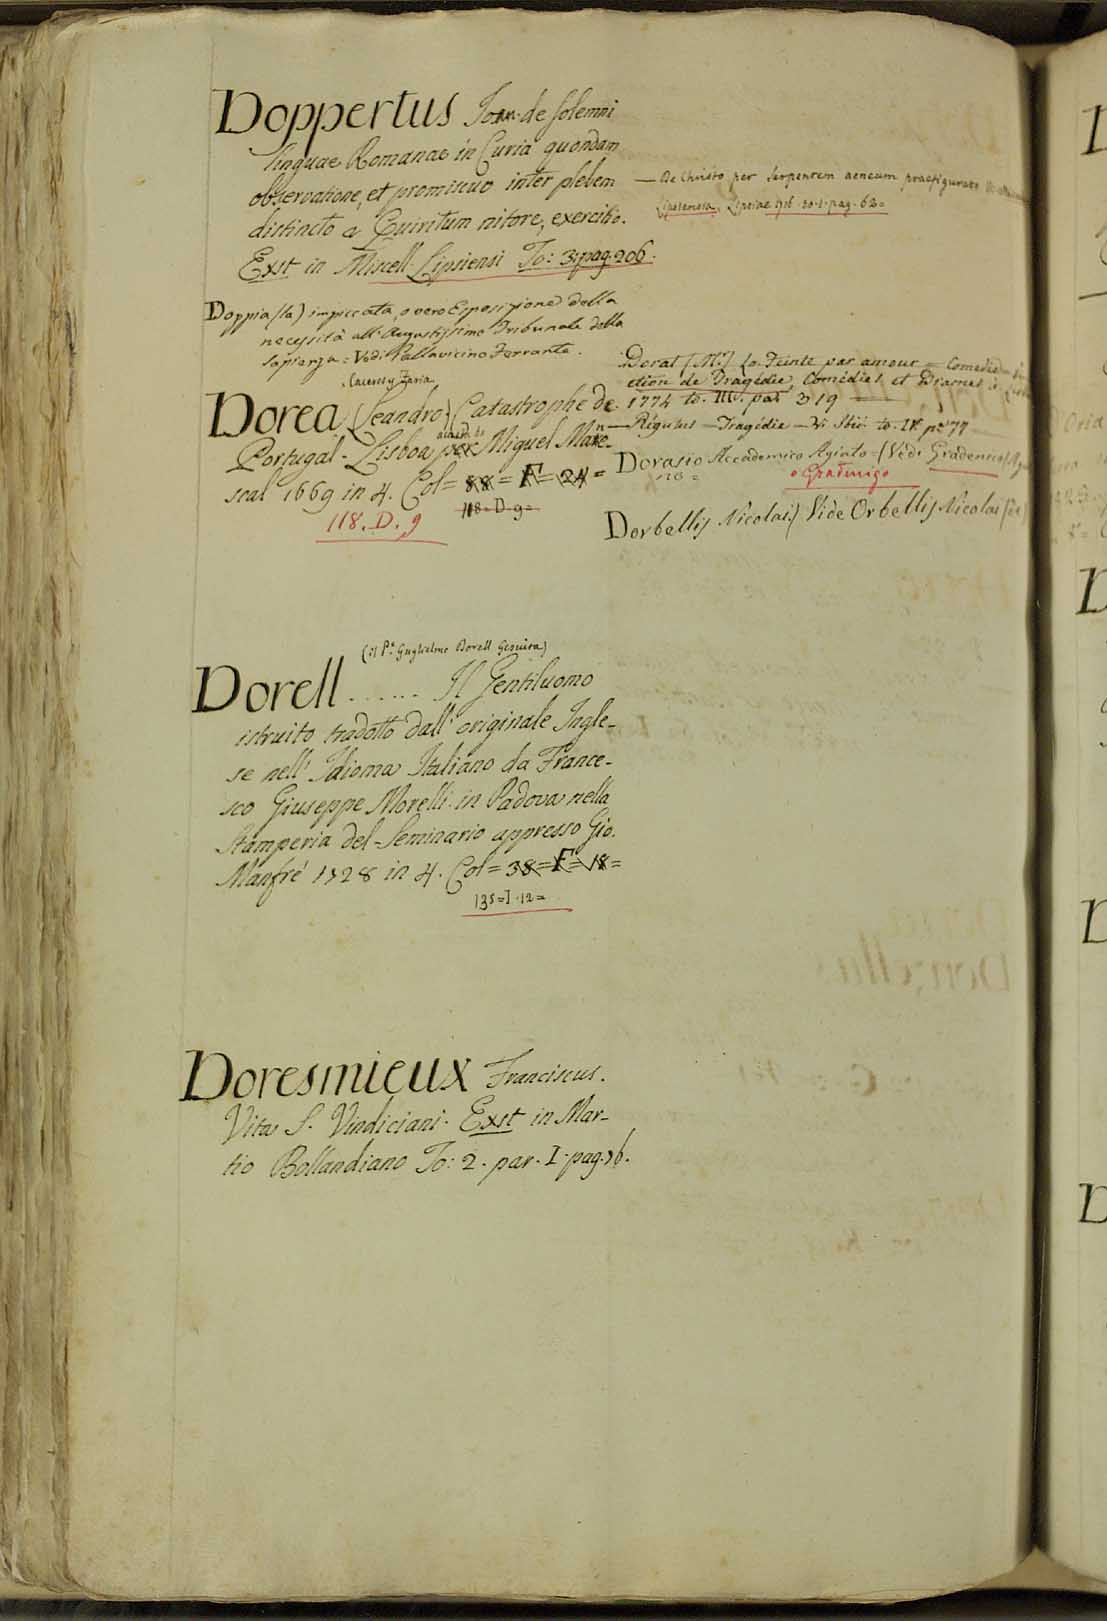 Doppertus Joan. de solemni
linguae Romanae in Curia quondam
observatione, et promiscuo inter plebem
distincto a Quiritum nitore, exercitio.
Exst in Miscell. Lipsiensi To: 3. pag. 206.
— De Christo per serpentem aeneum praefigurato
Lipsiae 1716. to. 1. pag. 62=
Doppia (la) impiccata, o vero Esposizione della
necessità all' Augustissimo Tribunale della
sapienza = Vedi Pallavicino Ferrante.
Caceres y Faria
Dorea (Leandro) Catastrophe de
Portugal. Lisboa acusta de Miguel Man-
scal 1669 in 4. Col = 88 = F = 24 =
118 = D. 9 =
118. D. 9
Dorat (Mr.) La Feinte par amour = Comedie =
ction de Tragédies, Comédies et Drames
1774 to. III. pag 319
— Régulus — Tragédie — Vi Ibii to. IV pag 77
Dorasio Accademico Agiato = (Vedi Gradenico
o Gradinigo
Dorbellis Nicolai) Vide Orbellis Nicolai (de)
(il P.e Guglielmo Dorell Gesuita)
Dorell ...... Il Gentiluomo
istruito tradotto dall' originale Ingle-
se nell' Idioma Italiano da France-
sco Giuseppe Morelli. in Padova nella
Stamperia del Seminario appresso Gio.
Manfrè 1728 in 4. Col = 38 = F = 18 =
135 = I. 12 =
Doresmieux Franciscus.
Vita S. Vindiciani. Exst in Mar-
tio Bollandiano To: 2. par. I. pag. 76.